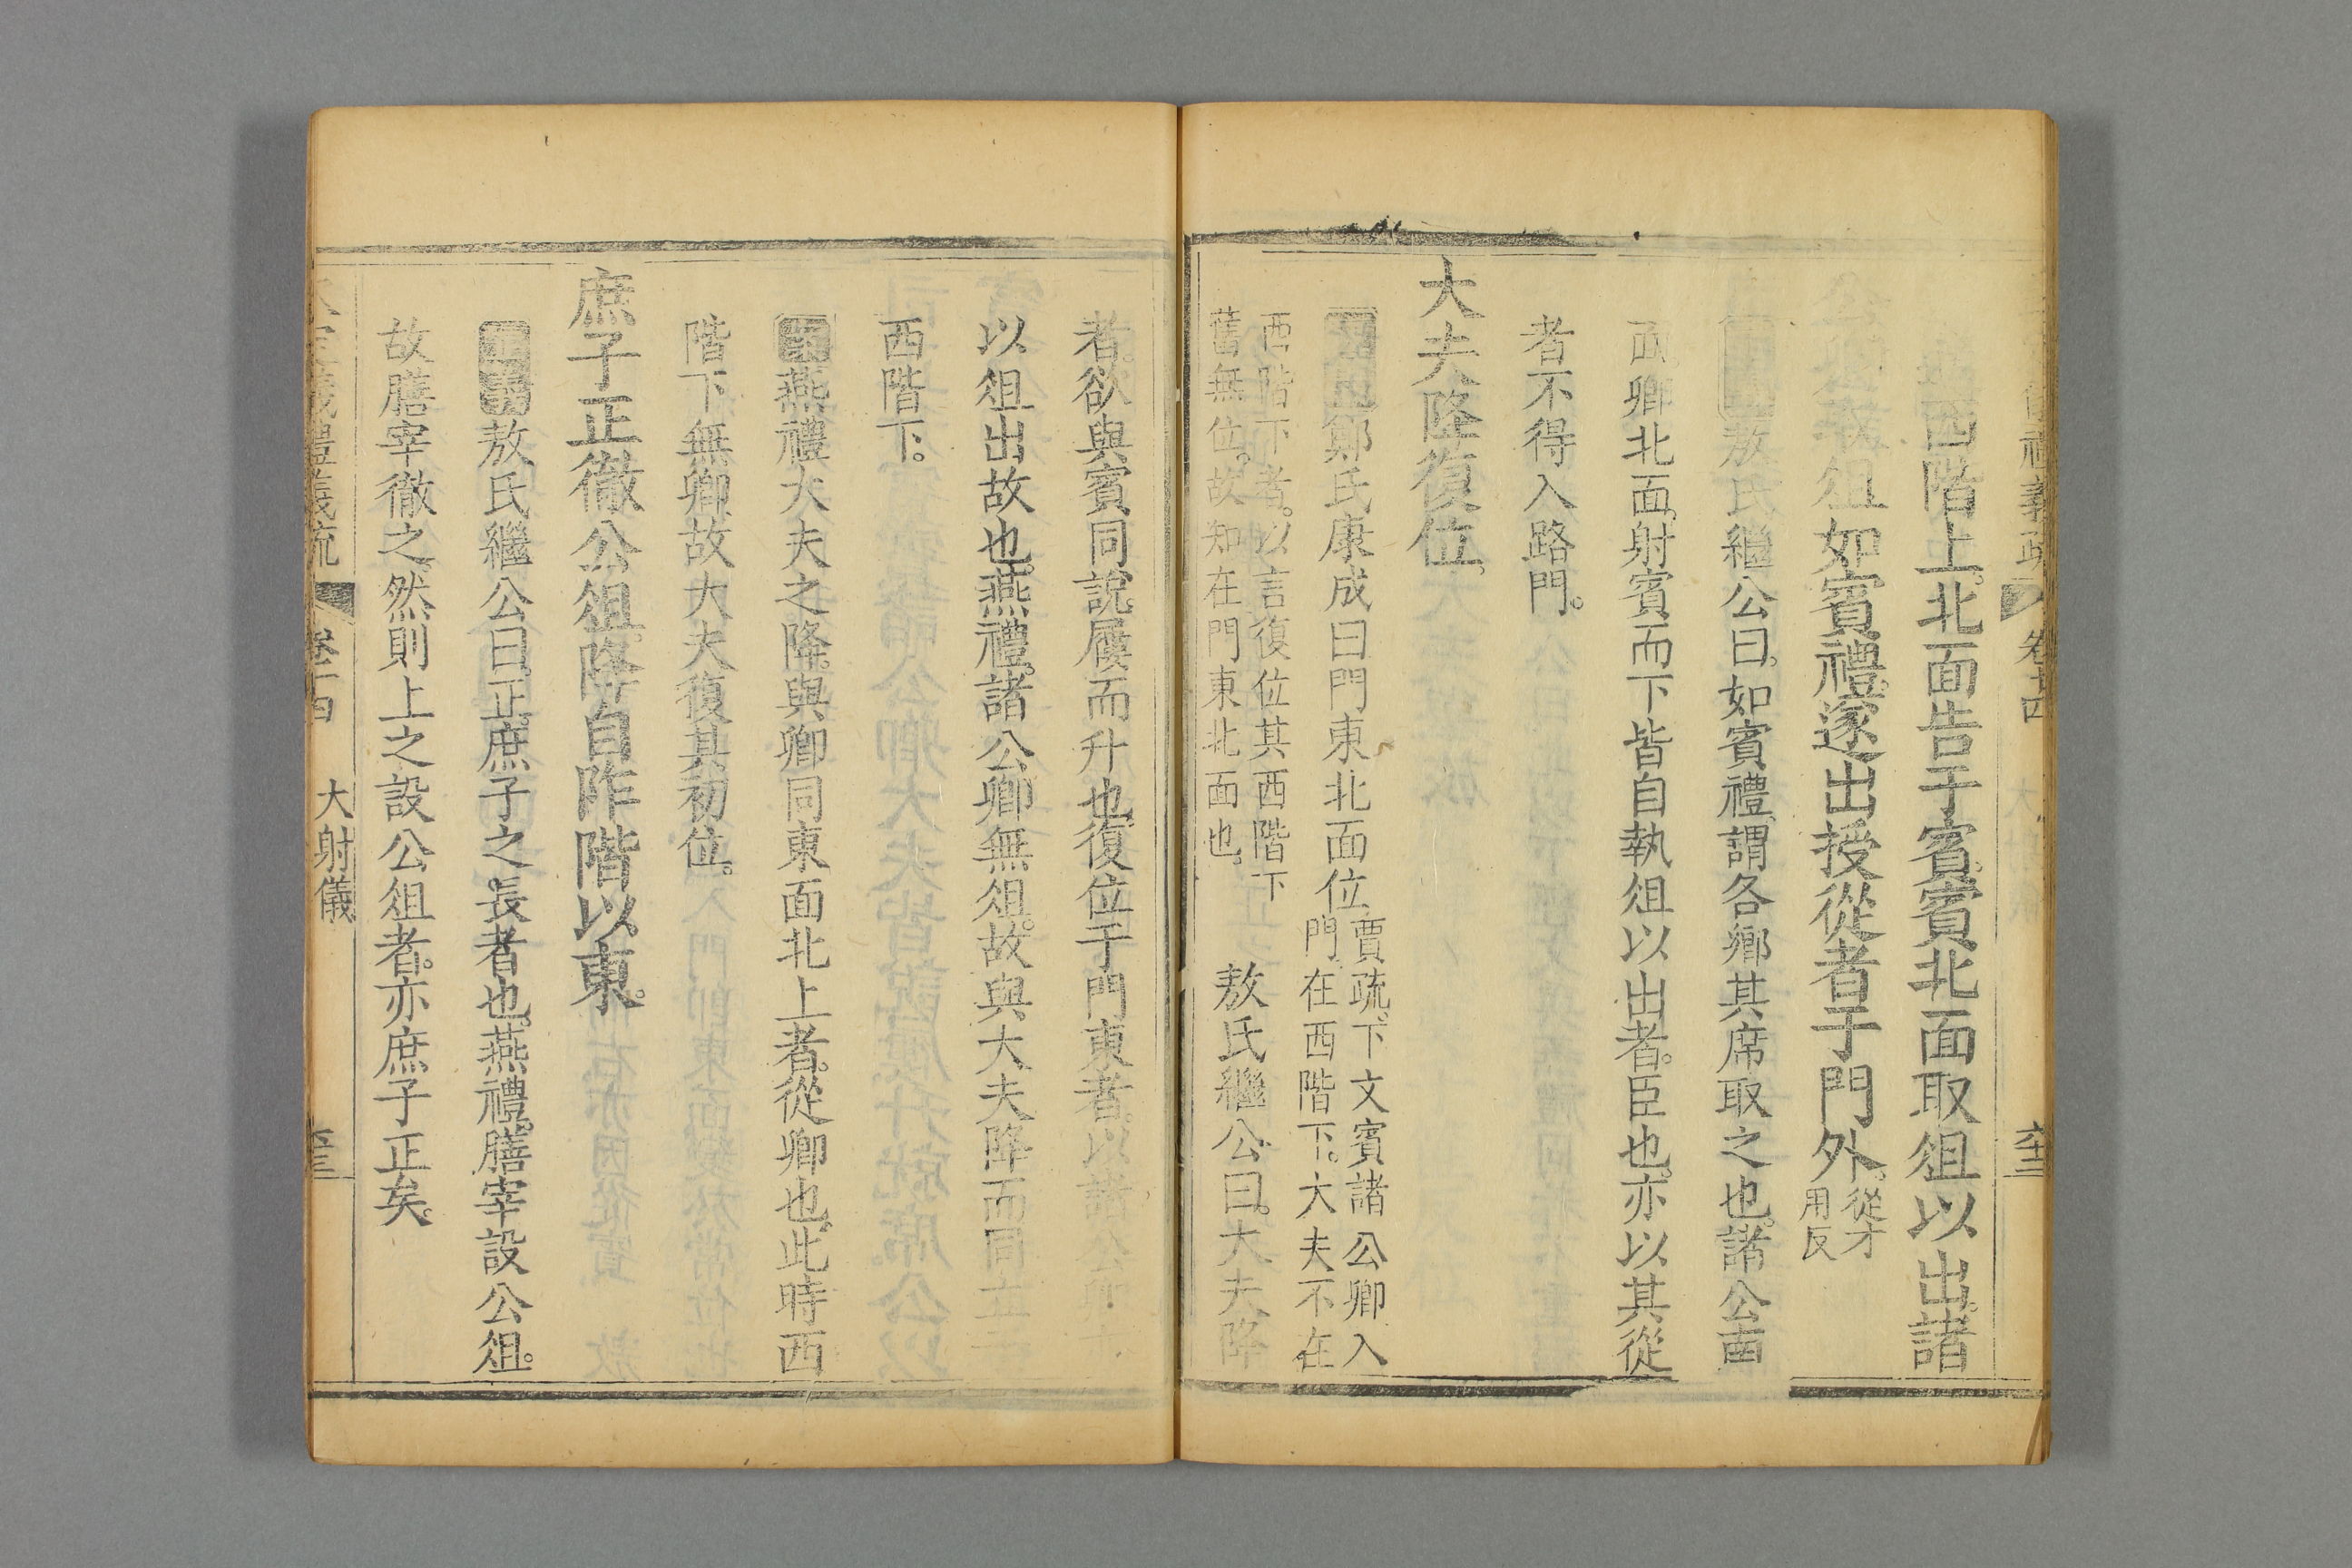 西階上。北面告于賓。賓北面取俎以出。諸
公卿取俎如賓禮。遂出授從者于門外。從才用反
正義敖氏繼公曰。如賓禮。謂各鄉其席取之也。諸公南
面卿北面。射賓而下皆自執俎以出者。臣也。亦以其從
者不得入路門。
大夫降復位。
正義鄭氏康成曰門東北面位
賈疏。下文賓諸公卿入
門在西階下。大夫不在
西階下者。以言復位其西階下
舊無位。故知在門東北面也。
敖氏繼公曰。大夫降
者。欲與賓同說屨而升也。復位于門東者。以諸公卿
以俎出故也。燕禮。諸公卿無俎。故與大夫降而同立于
西階下。
案燕禮大夫之降。與卿同東面北上者。從卿也。此時西
階下無卿故大夫復其初位。
庶子正徹公俎。降自阼階以東。
正義敖氏繼公曰。正。庶子之長者也。燕禮。膳宰設公俎。
故膳宰徹之。然則上之設公俎者。亦庶子正矣。
儀禮義疏 卷十四 大射儀